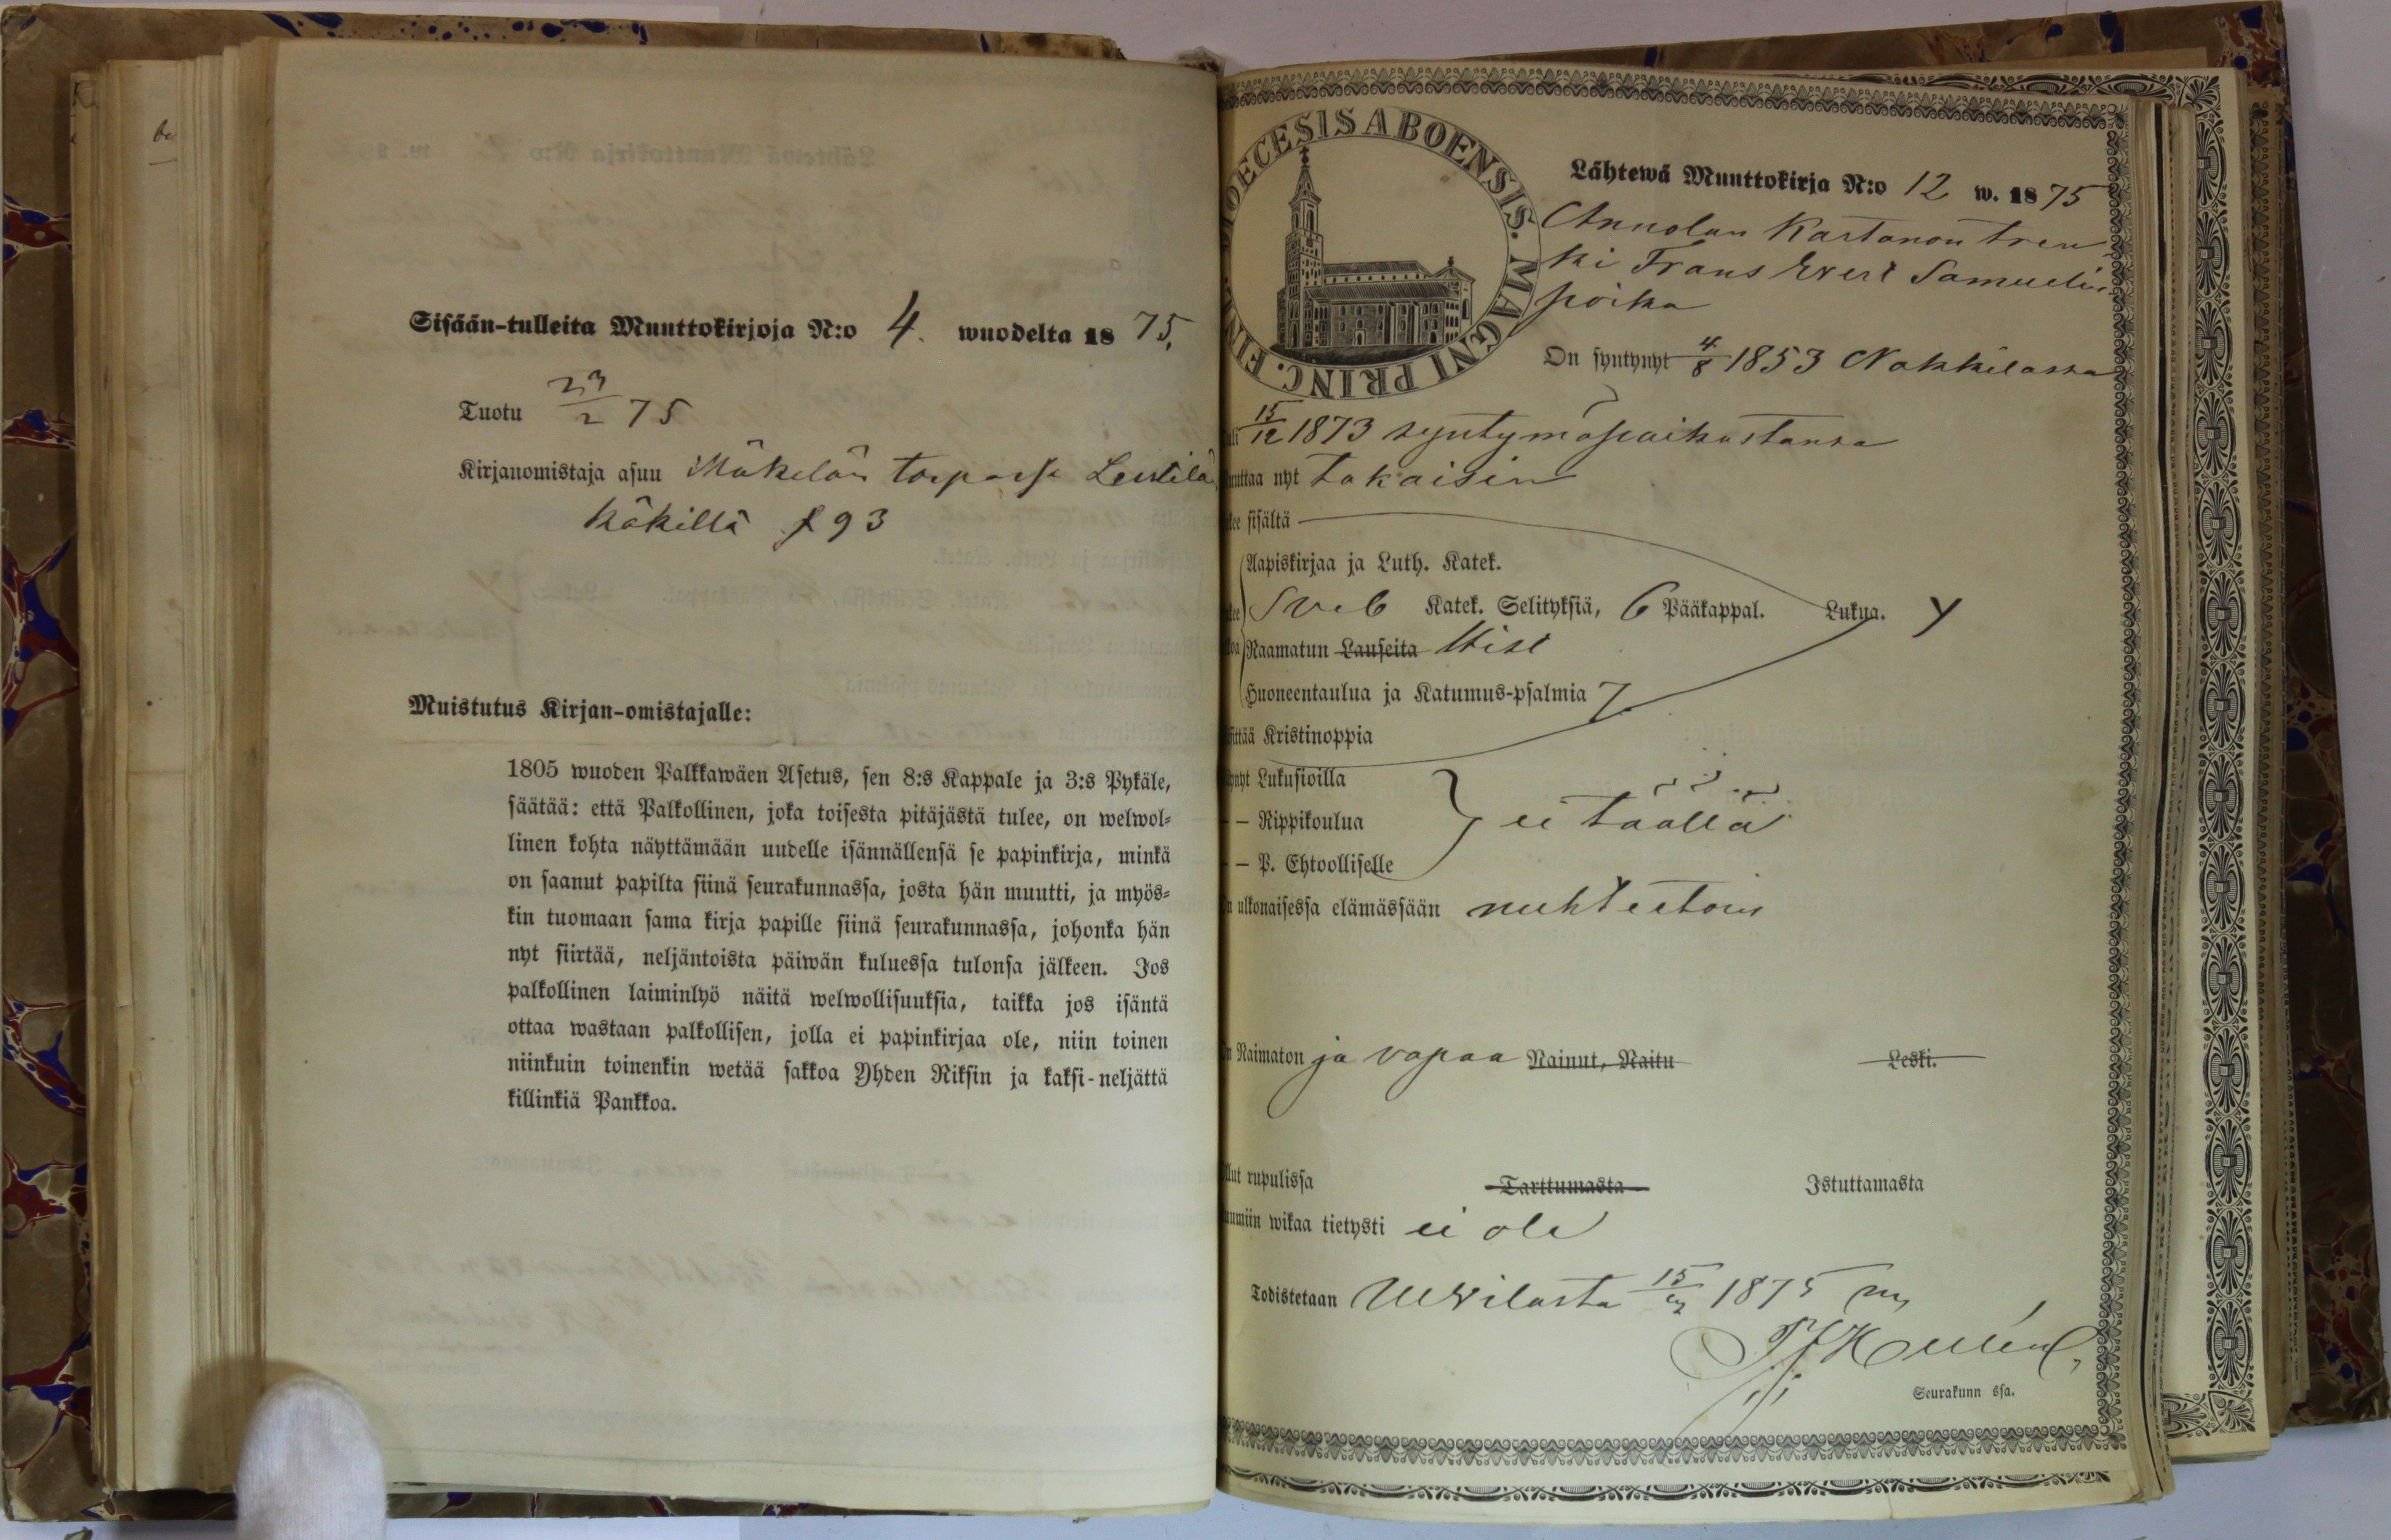 Sisään-tulleita Muuttokirjoja N:o 4. wuodelta 1875.
Tuotu 23/2 75
Kirjanomistaja asuu Mäkelän torpassa Leistilä
Käkillä f 93
Muistutus Kirjan-omistajalle:
1805 wuoden Palkkawäen Asetus, sen 8:s Kappale ja 3:s Pykäle,
säätää: että Palkollinen, joka toisesta pitäjästä tulee, on welwol=
linen kohta näyttämään uudelle isännällensä se papinkirja, minkä
on saanut papilta siinä seurakunnassa, josta hän muutti, ja myös=
kin tuomaan sama kirja papille siinä seurakunnassa, johonka hän
nyt siirtää, neljäntoista päiwän kuluessa tulonsa jälkeen. Jos
palkollinen laiminlyö näitä welwollisuuksia, taikka jos isäntä
ottaa wastaan palkollisen, jolla ei papinkirjaa ole, niin toinen
niinkuin toinenkin wetää sakkoa Yhden Riksin ja kaksi-neljättä
killinkiä Pankkoa.
DIOECESIS ABOENSIS. MAGNI PRINC. FINL.
Lähtewä Muuttokirja N:o 12 w. 1875
Annolan Kartanon tren
ki Frans Evert Samuelin
poika
On syntynyt 4/8 1853 Nakkilassa
uli 15/12 1873 syntymäpaikastansa
uuttaa nyt takaisin
kee sisältä
Aapiskirjaa ja Luth. Katek.
Sveb Katek. Selityksiä, 6 Pääkappal. Lukua. y
Raamatun Lauseita Hist
Huoneentaulua ja Katumus-psalmia 7.
sittää Kristinoppia
ynyt Lukusioilla
— Rippikoulua ei täällä
— P. Ehtoolliselle
n ulkonaisessa elämässään nuhteetoin
n Naimaton ja vapaa Nainut, Naitu Leski.
llut rupulissa Tarttumasta Istuttamasta
uumiin wikaa tietysti ei ole
Todistetaan Ulvilasta 15/2 1875
Seurakunn ssa.